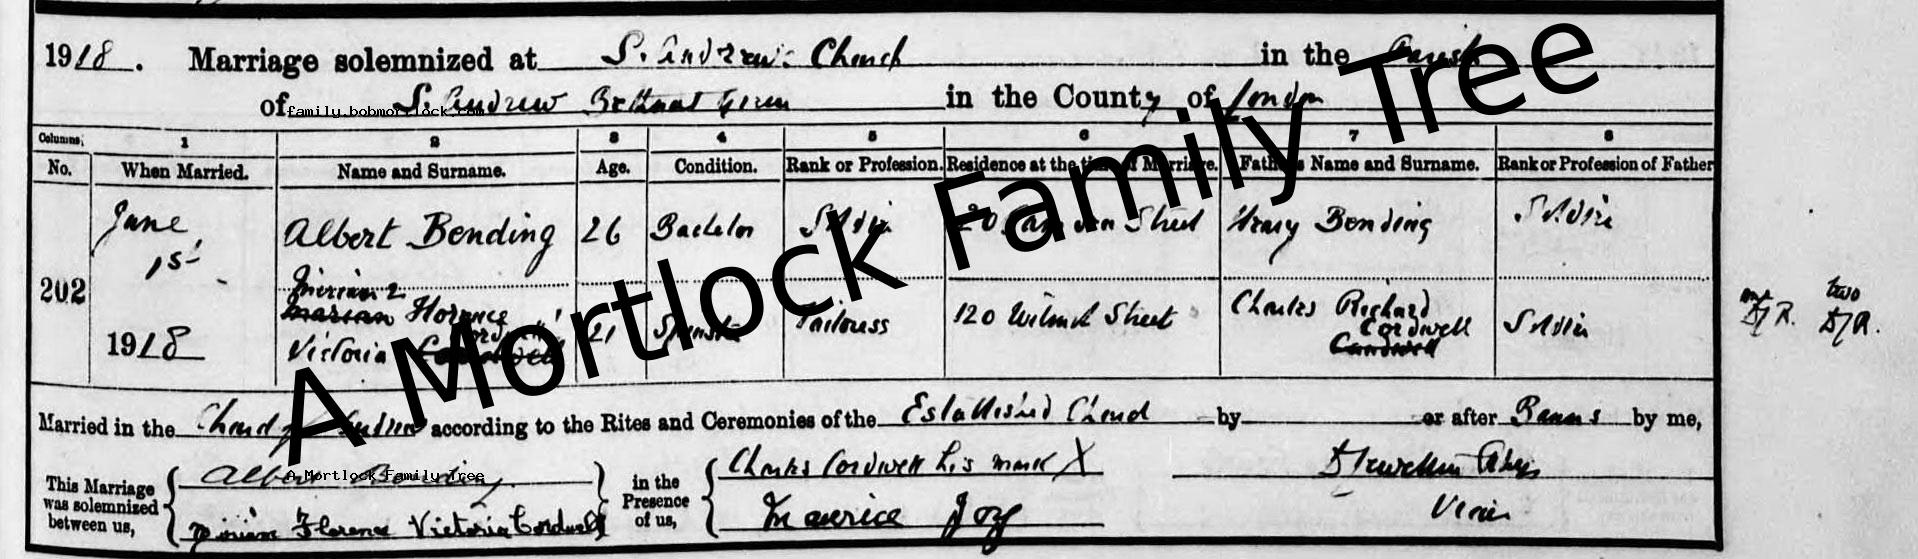 1918. Marriage solemnized at S. Andrew's Church in the Parish
of S. Andrew Bethnal Green in the County of London
family.bobmortlock.com
Columns: 1 2 3 4 5 6 7 8
No. When Married. Name and Surname. Age. Condition. Rank or Profession. Residence at the time of Marriage. Father's Name and Surname. Rank or Profession of Father
202 June 1st 1918 Albert Bending 26 Bachelor Soldier 20 Street Henry Bending Soldier
Miriam Florence Victoria Cordwell 21 Spinster Tailoress 120 Wilmot Street Charles Richard Cordwell Soldier
Marian
Cardwell
two
Married in the Church of S. Andrew according to the Rites and Ceremonies of the Established Church by or after Banns by me,
This Marriage was solemnized between us, Albert Bending
Miriam Florence Victoria Cordwell
in the Presence of us, Charles Cordwell his mark X
Maurice Joy
Vicar
A Mortlock Family Tree
A Mortlock Family Tree